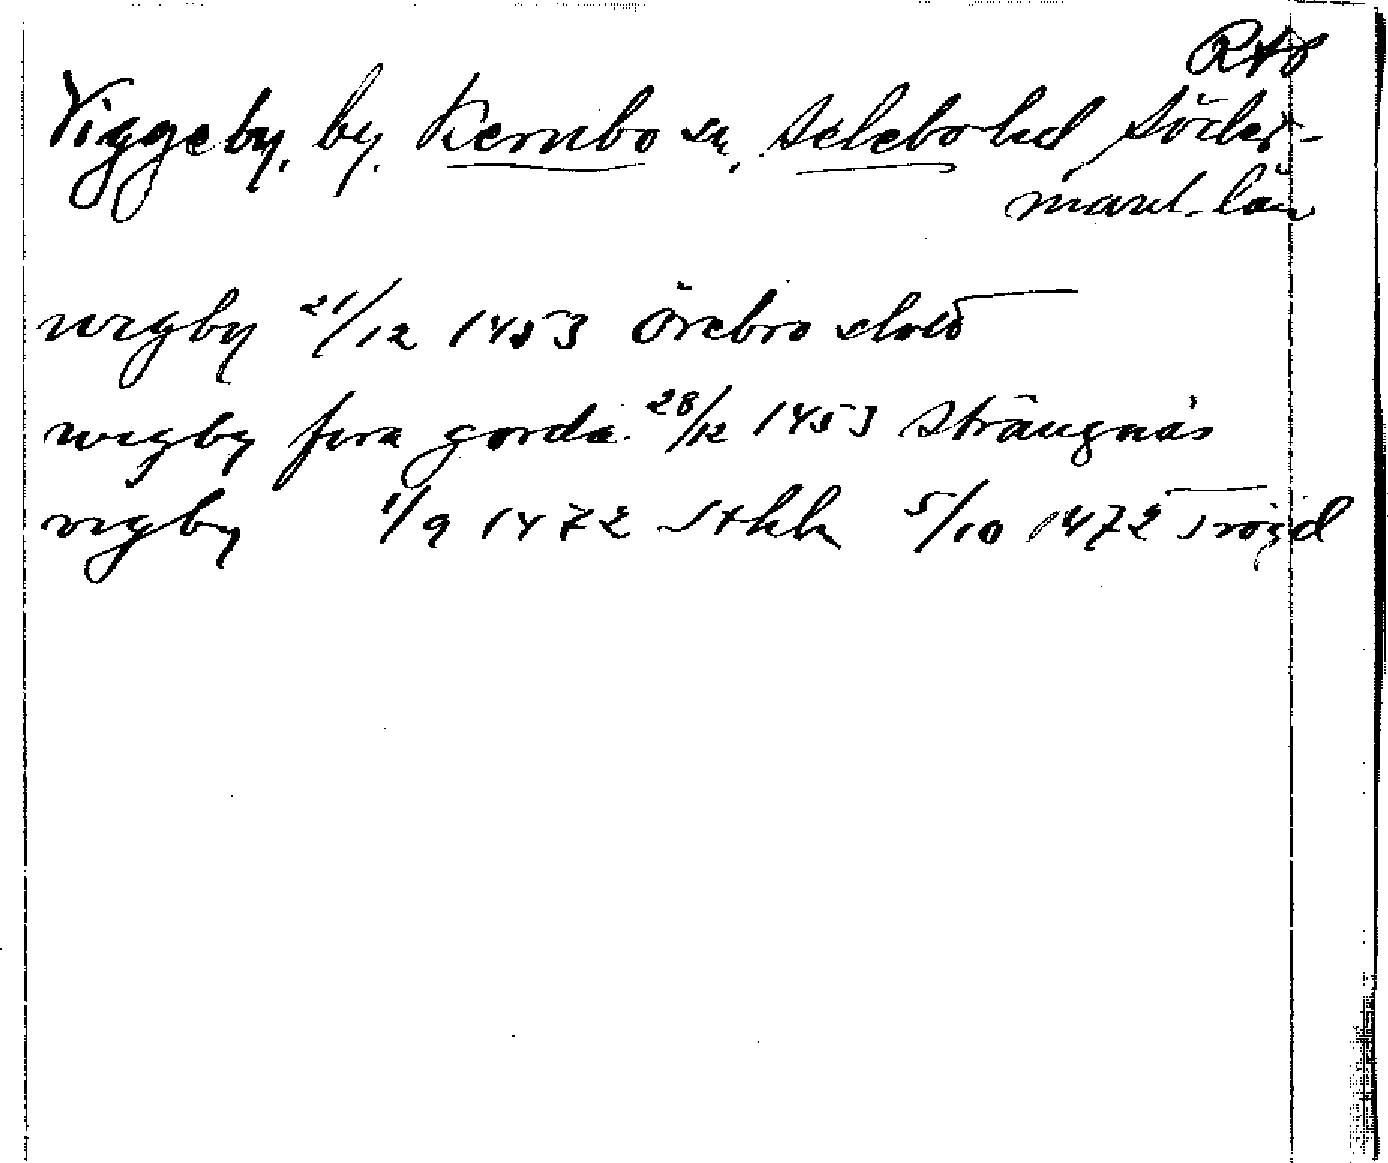 RAp
Viggeby, by, Kernbo sn, Selebo hd Söder-
manl. län
wigby 21/12 1453 Örebro slott
wigby fira gorda 28/12 1453 Strängnäs
vigby 1/9 1472 Sthlm 5/10 1472 Trögd